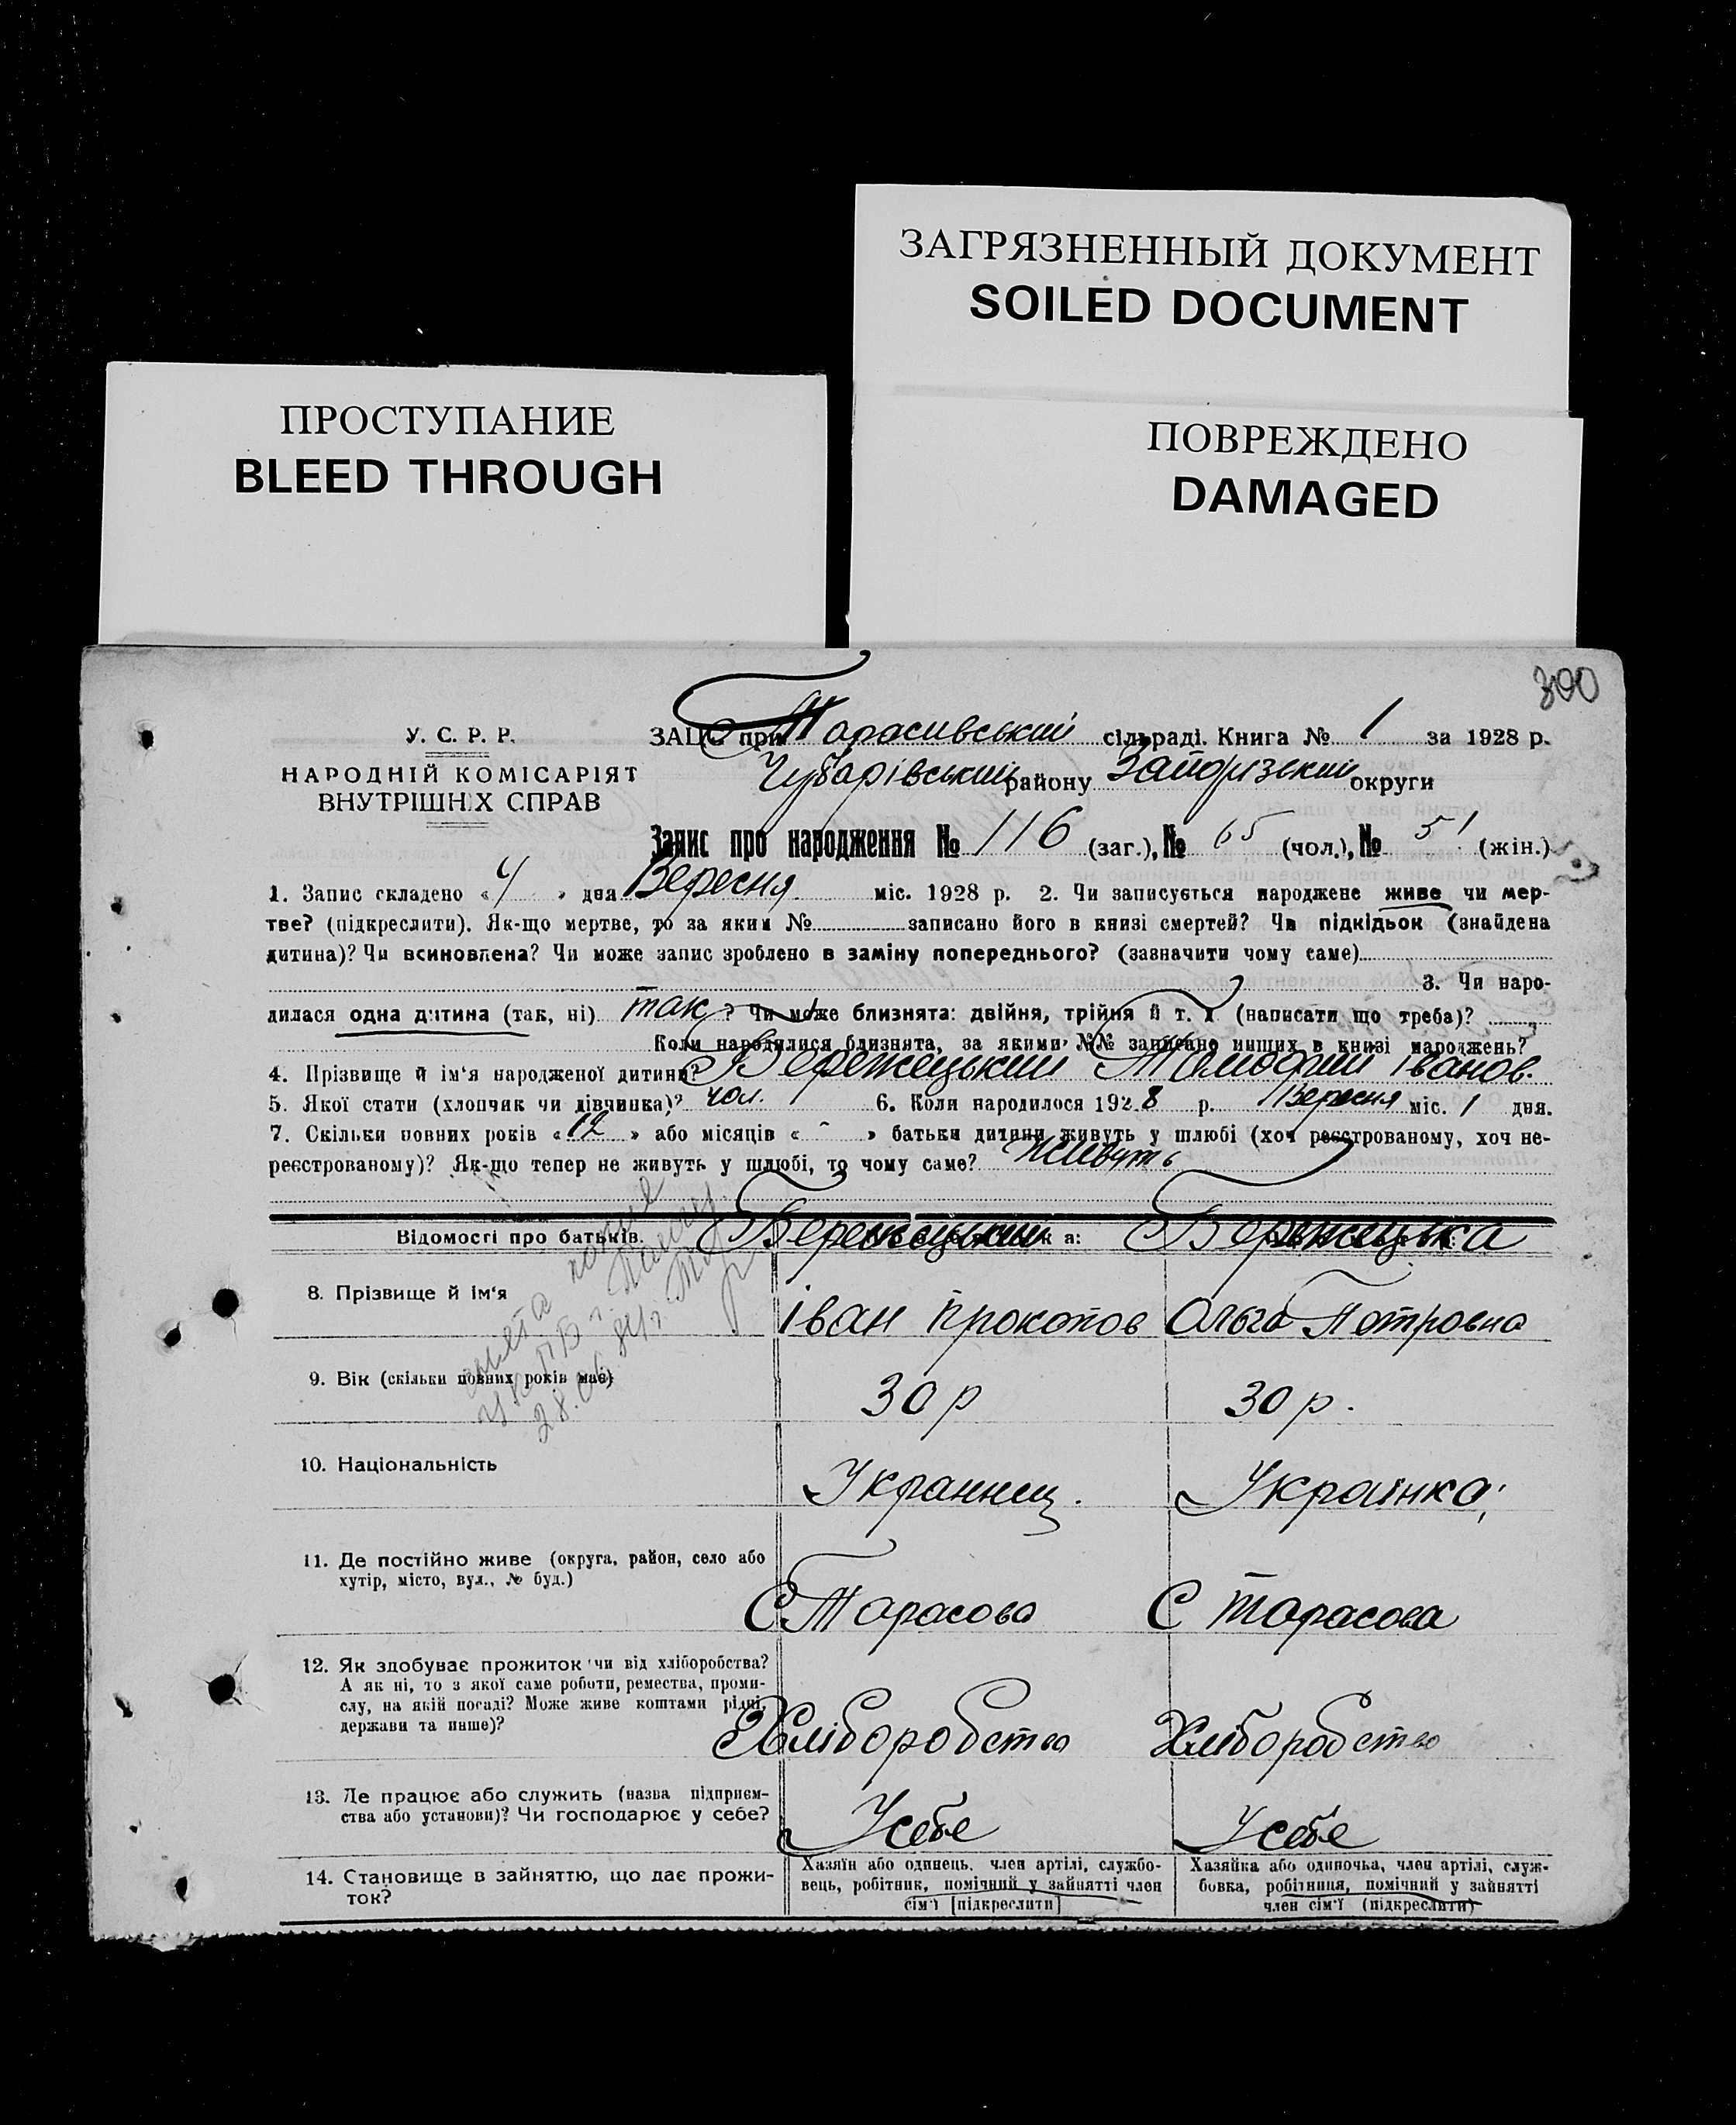 ЗАГРЯЗНЕННЫЙ ДОКУМЕНТ
SOILED DOCUMENT
ПРОСТУПАНИЕ
BLEED THROUGH
ПОВРЕЖДЕНО
DAMAGED
300
У. С. Р. Р.
НАРОДНІЙ КОМІСАРІЯТ
ВНУТРІШНІХ СПРАВ
ЗАЦС при Тарасивський сільраді. Книга № 1 за 1928 р.
Чубарівський району Запорізький округи
Запис про народження № 116 (заг.), № 65 (чол.), № 51 (жін.)
1. Запис складено « 4 » дня Вересня міс. 1928 р. 2. Чи записується народжене живе чи мер-
тве? (підкреслити). Як-що мертве, то за яким № записано його в книзі смертей? Чи підкідьок (знайдена
дитина)? Чи всиновлена? Чи може запис зроблено в заміну попереднього? (зазначити чому саме)
3. Чи наро-
дилася одна дитина (так, ні) так ? Чи може близнята: двійня, трійня й т. д. (написати що треба)?
Коли народилися близнята, за якими №№ записано инших в книзі народжень?
4. Прізвище й ім'я народженої дитини? Бережецький Тимофий Іванов.
5. Якої стати (хлопчик чи дівчинка)? чол. 6. Коли народилося 1928 р. Вересня міс. 1 дня.
7. Скільки повних років « 12 » або місяців « - » батьки дитини живуть у шлюбі (хоч реєстрованому, хоч не-
реєстрованому)? Як-що тепер не живуть у шлюбі, то чому саме? живуть
Відомості про батьків. Бережецький к а: Бережецька
8. Прізвище й ім'я Іван Прокопов Ольга Петровна
9. Вік (скільки повних років має) 30 р 30 р.
28.06.84г.
10. Національність Украинец. Українка;
11. Де постійно живе (округа, район, село або
хутір, місто, вул., № буд.) С Тарасова С Тарасова
12. Як здобуває прожиток чи від хліборобства?
А як ні, то з якої саме роботи, ремества, проми-
слу, на якій посаді? Може живе коштами рідні,
держави та инше)? Хліборобство Хліборобство
13. Де працює або служить (назва підприєм-
ства або установи)? Чи господарює у себе? У себе У себе
14. Становище в зайняттю, що дає прожи-
ток?
Хазяїн або одинець, член артілі, службо-
вець, робітник, помічний у зайнятті член
сім'ї [підкреслити]
Хазяйка або одиночка, член артілі, служ-
бовка, робітниця, помічний у зайнятті
член сім'ї (підкреслити)